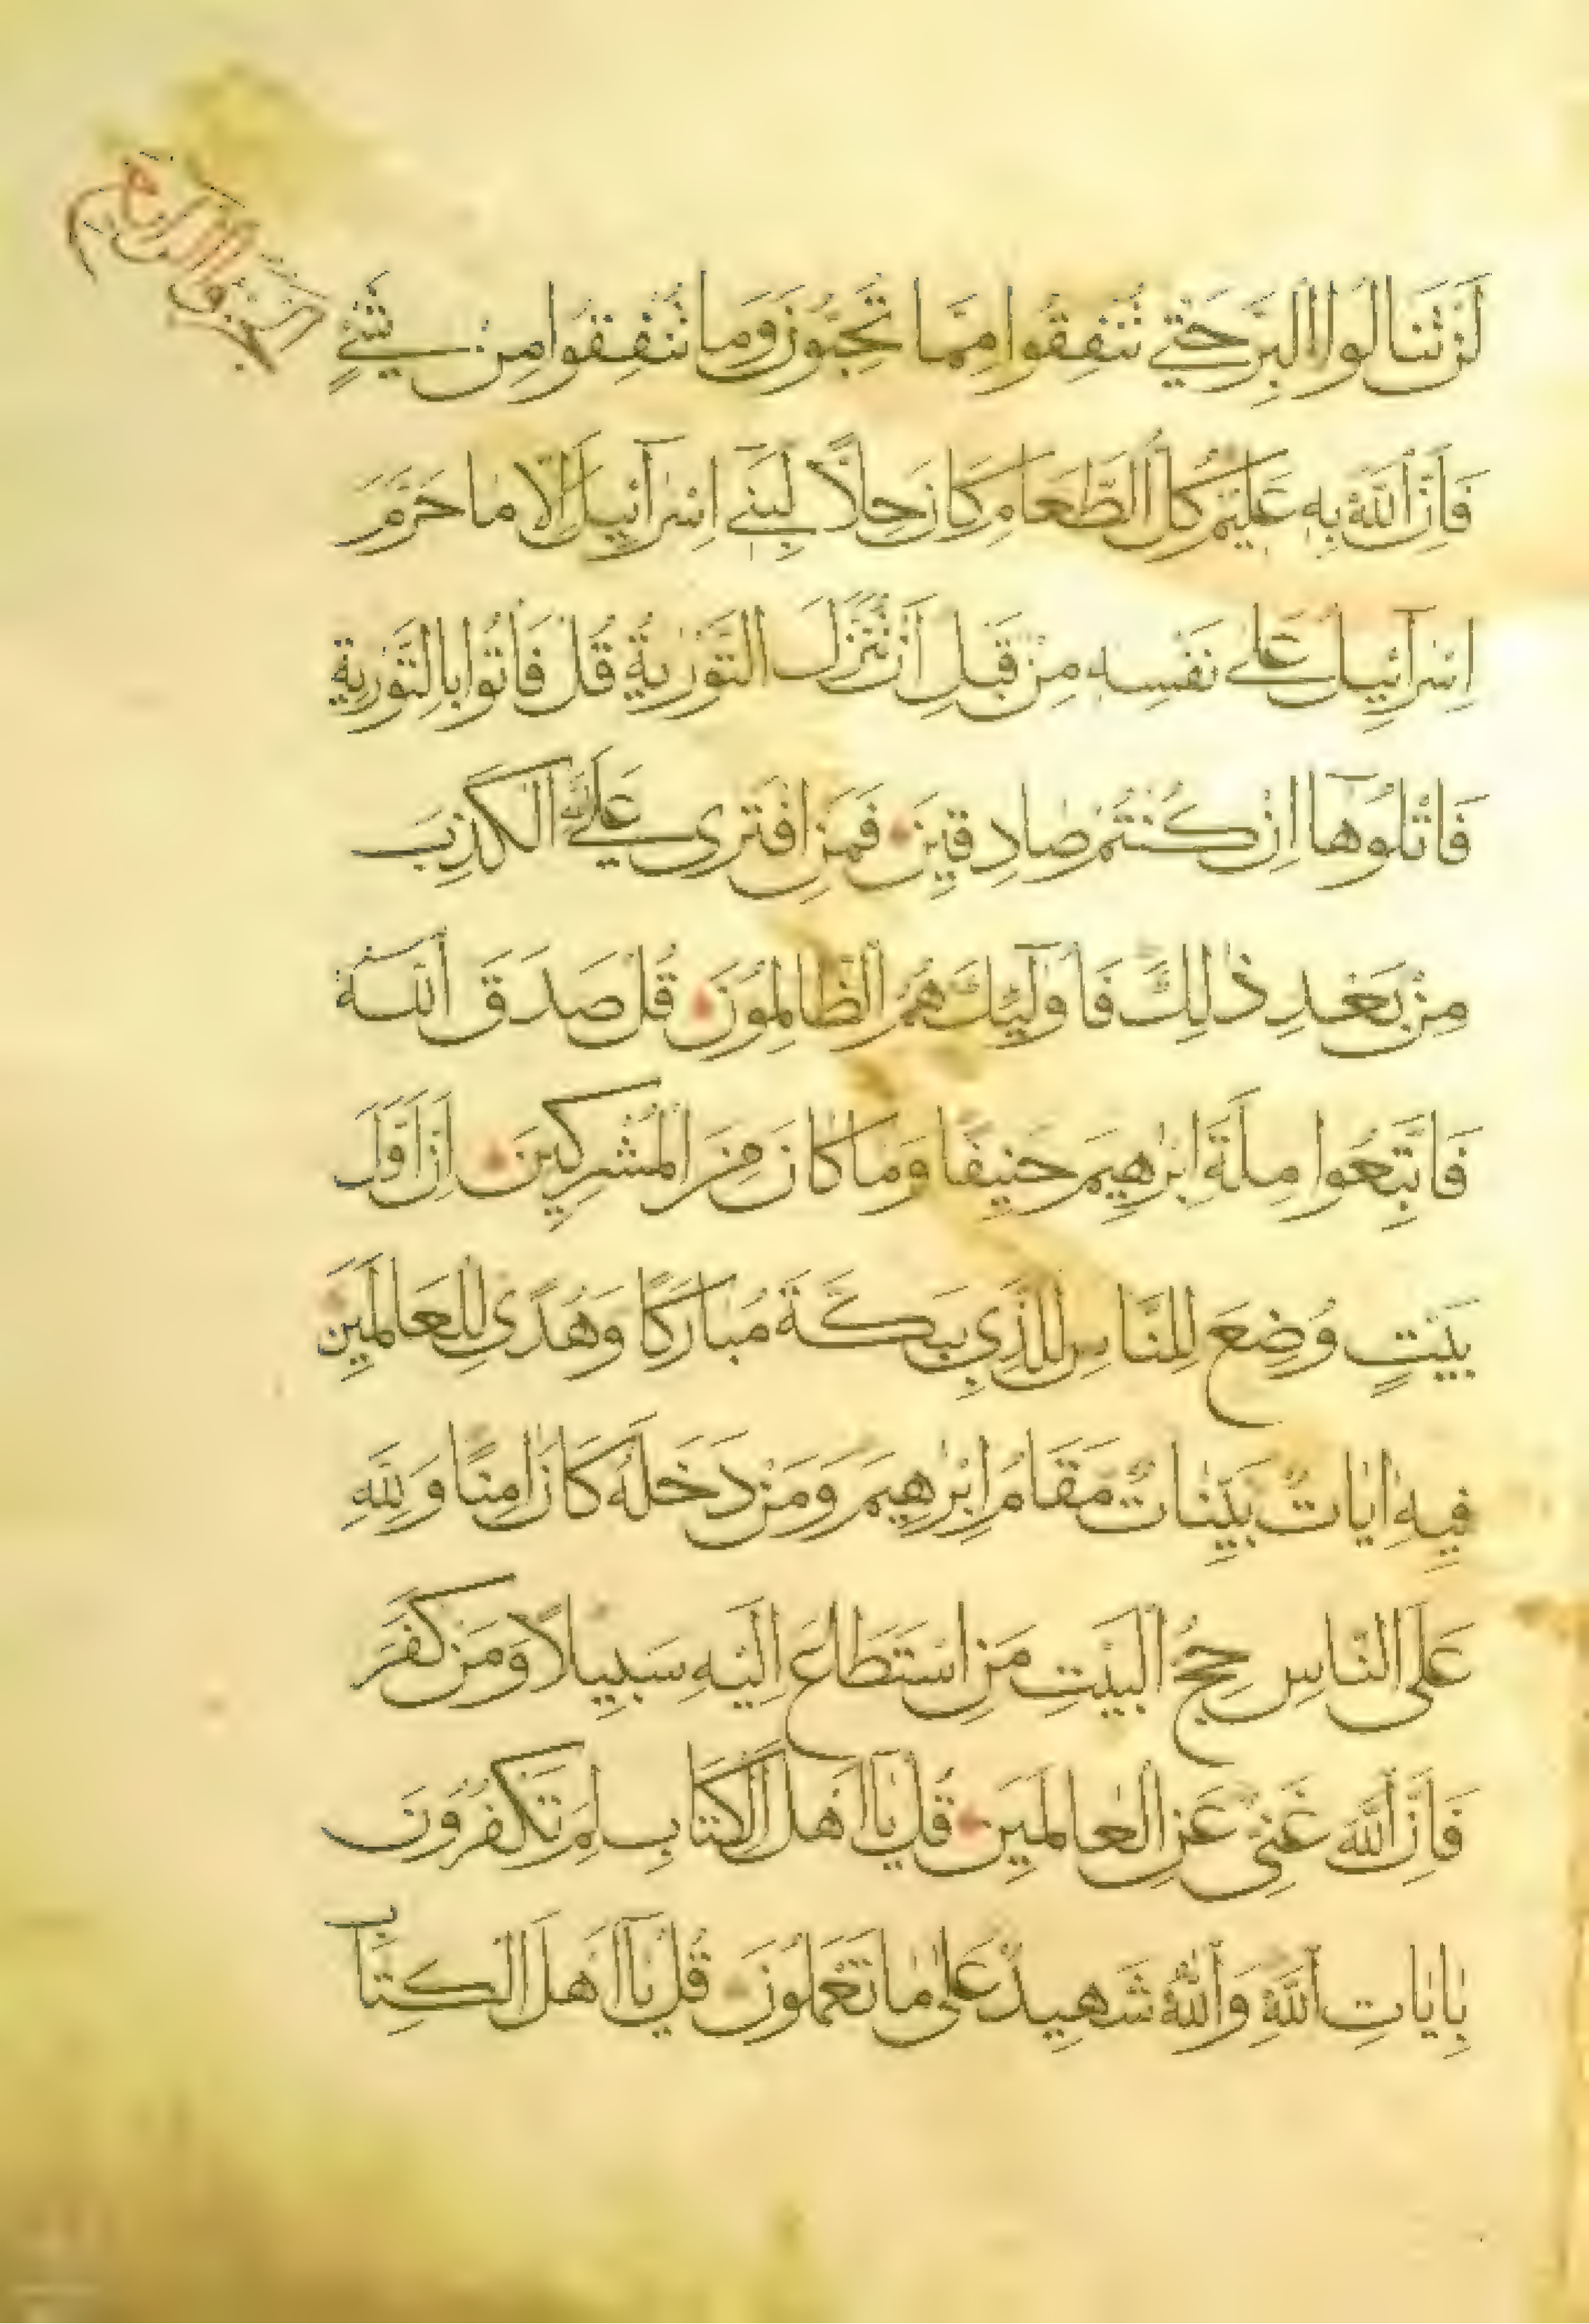 الجزو الرابع
لَنْ تَنَالُوا الْبِرَّ حَتّٰى تُنْفِقُوا مِمَّا تُحِبُّونَ وَمَا تُنْفِقُوا مِنْ شَيْءٍ
فَاِنَّ اللّٰهَ بِهِ عَلِيمٌ كُلُّ الطَّعَامِ كَانَ حِلًّا لِبَنِي اِسْرَآئِيلَ اِلَّا مَا حَرَّمَ
اِسْرَآئِيلُ عَلٰى نَفْسِهِ مِنْ قَبْلِ اَنْ تُنَزَّلَ التَّوْرٰيةُ قُلْ فَاْتُوا بِالتَّوْرٰيةِ
فَاتْلُوهَا اِنْ كُنْتُمْ صَادِقِينَ فَمَنِ افْتَرٰى عَلَى اللّٰهِ الْكَذِبَ
مِنْ بَعْدِ ذٰلِكَ فَاُولٰٓئِكَ هُمُ الظَّالِمُونَ قُلْ صَدَقَ اللّٰهُ
فَاتَّبِعُوا مِلَّةَ اِبْرٰهِيمَ حَنِيفًا وَمَا كَانَ مِنَ الْمُشْرِكِينَ اِنَّ اَوَّلَ
بَيْتٍ وُضِعَ لِلنَّاسِ لَلَّذِي بِبَكَّةَ مُبَارَكًا وَهُدًى لِلْعَالَمِينَ
فِيهِ اٰيَاتٌ بَيِّنَاتٌ مَقَامُ اِبْرٰهِيمَ وَمَنْ دَخَلَهُ كَانَ اٰمِنًا وَلِلّٰهِ
عَلَى النَّاسِ حِجُّ الْبَيْتِ مَنِ اسْتَطَاعَ اِلَيْهِ سَبِيلًا وَمَنْ كَفَرَ
فَاِنَّ اللّٰهَ غَنِيٌّ عَنِ الْعَالَمِينَ قُلْ يَا اَهْلَ الْكِتَابِ لِمَ تَكْفُرُونَ
بِاٰيَاتِ اللّٰهِ وَاللّٰهُ شَهِيدٌ عَلٰى مَا تَعْمَلُونَ قُلْ يَا اَهْلَ الْكِتَابِ